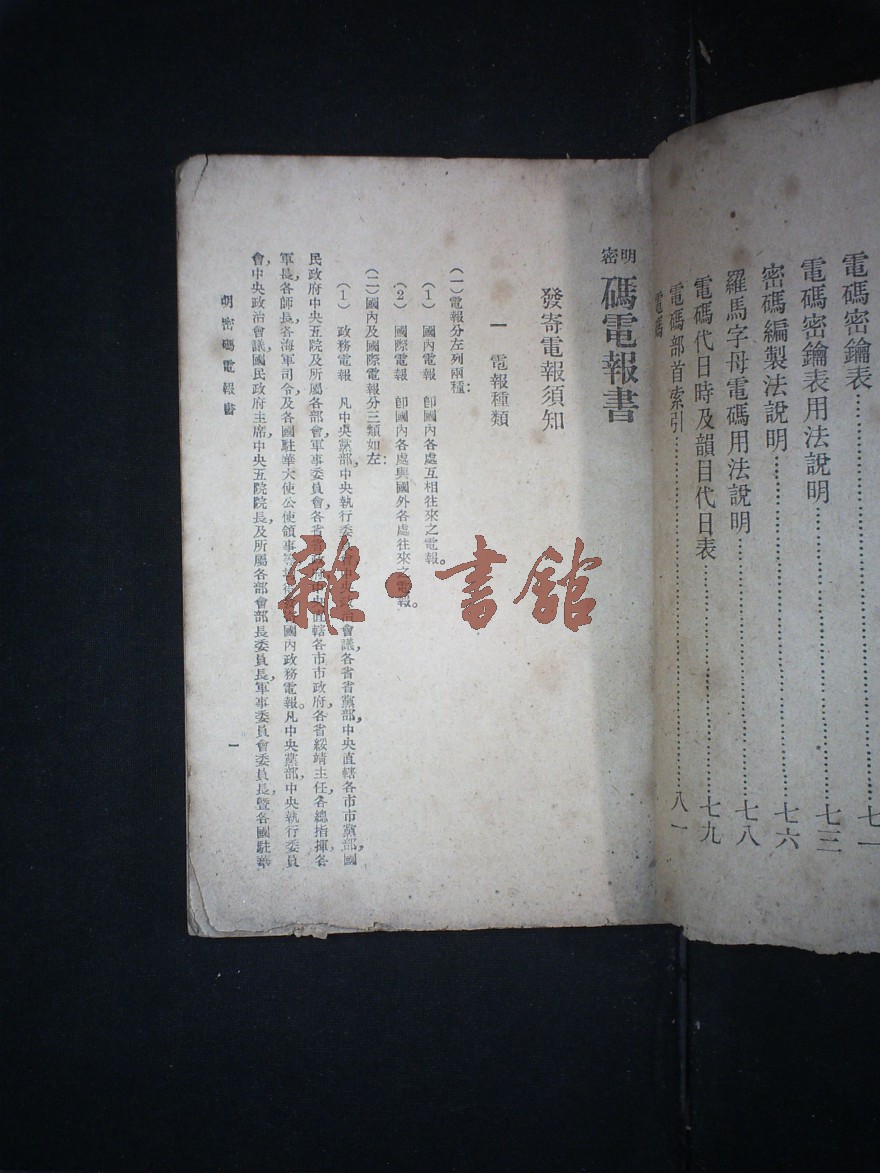 電碼密鑰表……………………七一
電碼密鑰表用法說明……………………七三
密碼編製法說明……………………七六
羅馬字母電碼用法說明……………………七八
電碼代日時及韻目代日表……………………七九
電碼部首索引……………………八一
電碼
明密碼電報書
發寄電報須知
一 電報種類
(一)電報分左列兩種:
(1) 國內電報 卽國內各處互相往來之電報。
(2) 國際電報 卽國內各處與國外各處往來之電報。
(二)國內及國際電報分三類如左:
(1) 政務電報 凡中央黨部,中央執行委會中央政治會議,各省省黨部,中央直轄各市市黨部,國
民政府中央五院及所屬各部會,軍事委員會,各省省政府中央直轄各市市政府,各省綏靖主任,各總指揮各
軍長,各師長,各海軍司令,及各國駐華大使公使領事等國內政務電報。凡中央黨部,中央執行委員
會,中央政治會議,國民政府主席,中央五院院長,及所屬各部會部長委員長,軍事委員會委員長,暨各國駐華
明密碼電報書
一
雜·書館